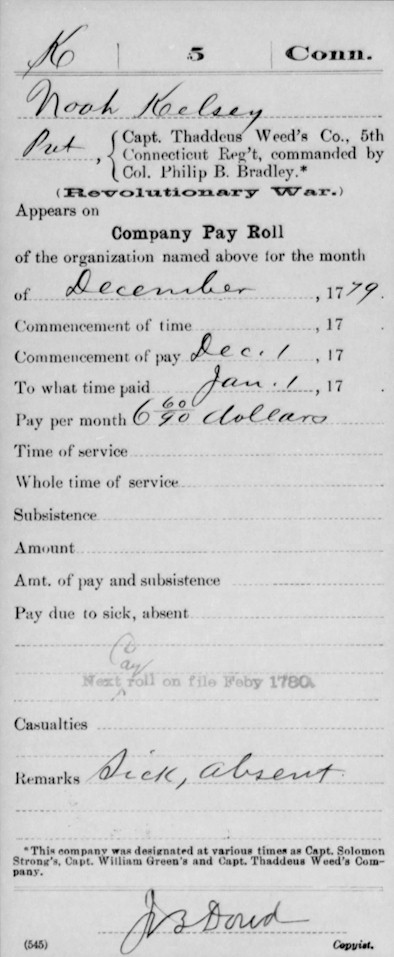 K 5 Conn.
Noah Kelsey
Pvt, { Capt. Thaddeus Weed's Co., 5th
Connecticut Reg't, commanded by
Col. Philip B. Bradley.*
(Revolutionary War.)
Appears on
Company Pay Roll
of the organization named above for the month
of December, 1779.
Commencement of time, 17 .
Commencement of pay Dec. 1, 17 .
To what time paid Jan. 1, 17 .
Pay per month 6 60/90 dollars
Time of service
Whole time of service
Subsistence
Amount
Amt. of pay and subsistence
Pay due to sick, absent
Pay
Next roll on file Feby 1780.
Casualties
Remarks Sick, absent
*This company was designated at various times as Capt. Solomon
Strong's, Capt. William Green's and Capt. Thaddeus Weed's Com-
pany.
J B Dowd
(545) Copyist.